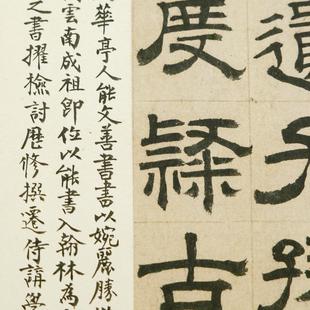 遺
度
古
華亭人能文善書書以婉麗勝
雲南成祖即位以能書入翰林為
之書擢檢討歷修撰遷侍講學